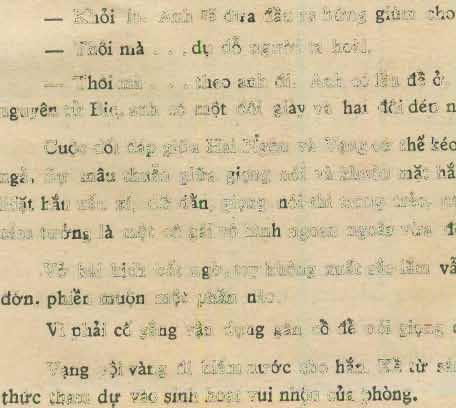 — Khỏi lo. Anh sẽ đưa đầu ra hứng giùm cho
— Thôi mà . . . dụ dỗ người ta hoài.
— Thôi mà . . . theo anh đi. Anh có lâu đề ở.
nguyên tử Bic, anh có một đôi giày và hai đôi dép n
Cuộc đối đáp giữa Hai Ngàn và Vạng có thể kéo
ngả. Sự mâu thuẫn giữa giọng nói và khuôn mặt hắ
Mặt hắn xấu xí, dữ dằn, giọng nói thì trong trẻo,
tưởng là một cô gái vô hình ngoan ngoãn vừa
Vở hài kịch bất ngờ, tuy không xuất sắc lắm vẫ
đờn. phiền muộn một phần nào.
Vì phải cố gắng vận dụng gân cổ để nói giọng
Vạng vội vàng đi kiếm nước cho hắn. Kể từ
thức tham dự vào sinh hoạt vui nhộn của phòng.